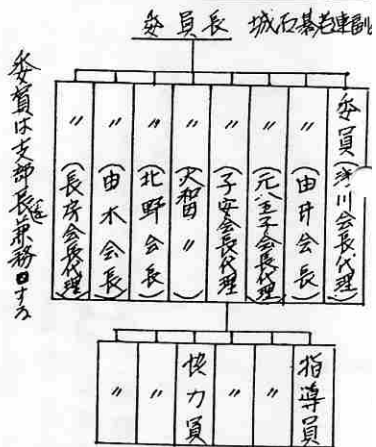 委員長 城石
委員(浅川会長代理)
〃(由井会長)
〃(元八王子会長代理)
〃(子安会長代理)
〃(大和田 〃)
〃(北野会長)
〃(由木会長)
〃(長房会長代理)
委員は支部長を兼務する
指導員
〃
〃
協力員
〃
〃